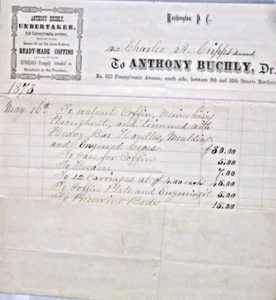 ANTHONY BUCHLY,
UNDERTAKER,
912 Pennsylvania Avenue,
READY-MADE COFFINS
FUNERALS Promptly Attended to
Washington, D. C.
Charles A. Cripps
To ANTHONY BUCHLY, Dr.
No. 912 Pennsylvania Avenue, south side, between 9th and 10th Streets
1873
May 16th To walnut Coffin,
throughout, and trimmed with
Heavy Bar Handles, Moulding
and Engraved Glass $80.00
To Case for Coffin 5.00
To Hearse 7.00
To 12 Carriages at $4.00 each 48.00
To Coffin Plate and Engraving 5.00
To Preserving Body 15.00